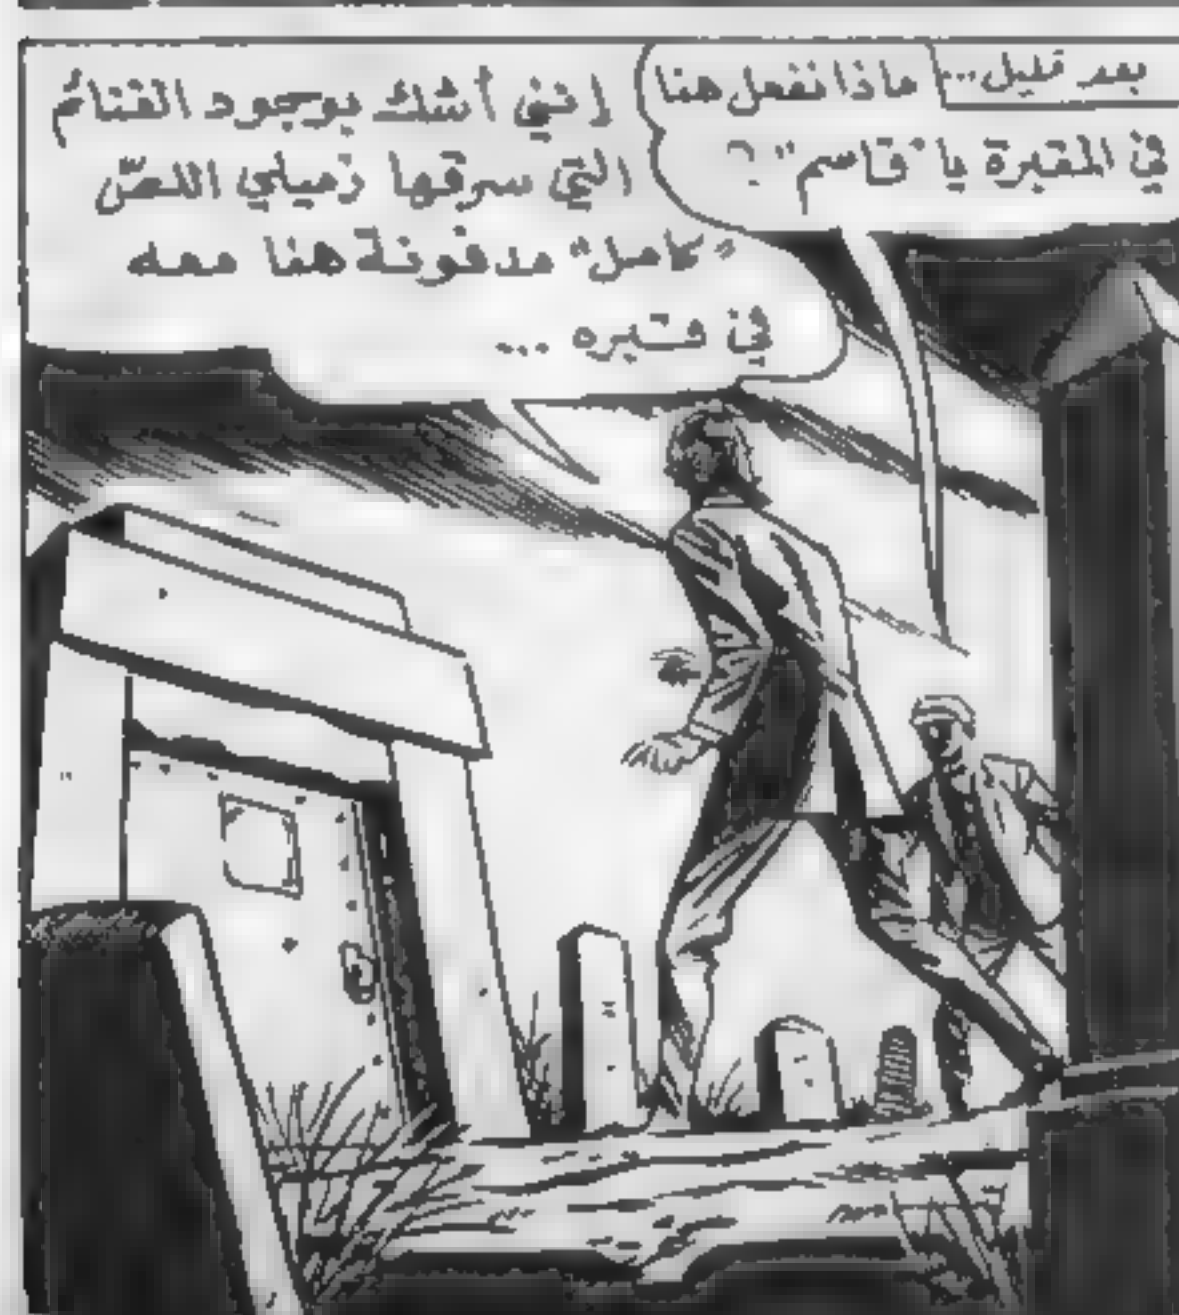 بعد قليل...
ماذا نفعل هنا
في المقبرة يا "قاسم"؟
إنني أشك بوجود الغنائم
التي سرقها زميلي اللصّ
"كامل" مدفونة هنا معه
في قبره ...